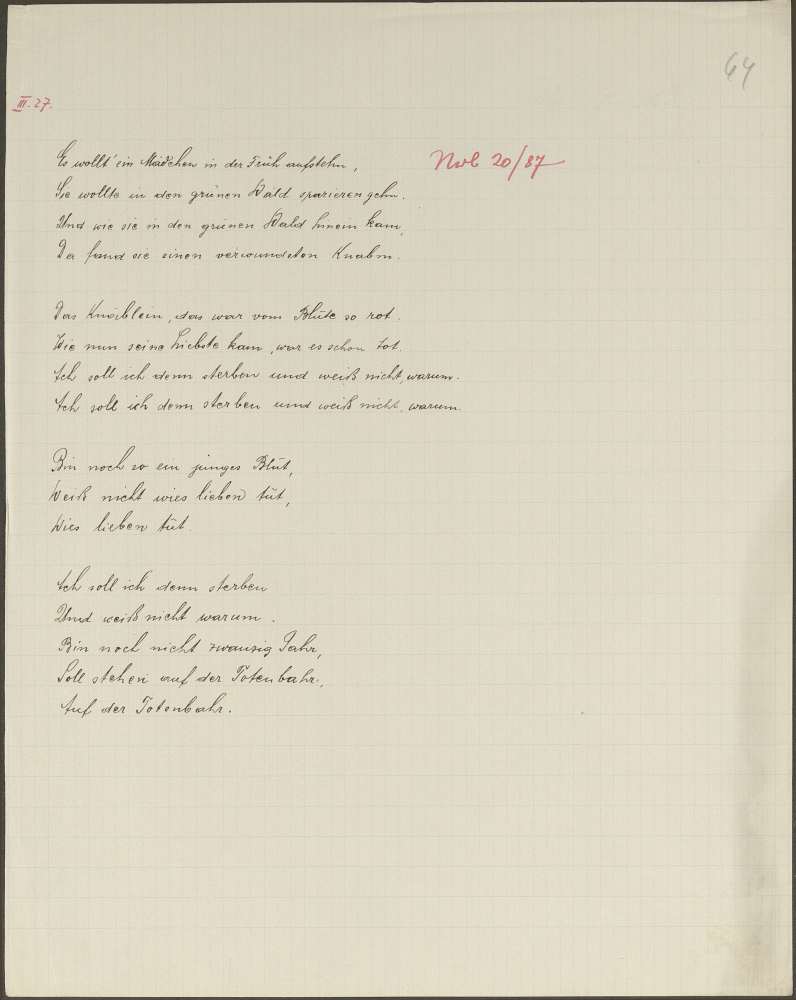 64
III. 27.
Es wollt' ein Mädchen in der Früh aufstehn,
Nvl 20/87
Sie wollte in den grünen Wald spazieren gehn.
Und wie sie in den grünen Wald hinein kam,
Da fand sie einen verwundeten Knabm.
Das Knäblein, das war vom Blute so rot.
Wie nun seine Liebste kam, war es schon tot.
Ach soll ich denn sterben und weiß nicht, warum.
Ach soll ich denn sterben und weiß nicht, warum.
Bin noch so ein junges Blut,
Weiß nicht wies lieben tut,
Wies lieben tut.
Ach soll ich denn sterben
Und weiß nicht warum.
Bin noch nicht zwanzig Jahr,
Soll stehen auf der Totenbahr,
Auf der Totenbahr.